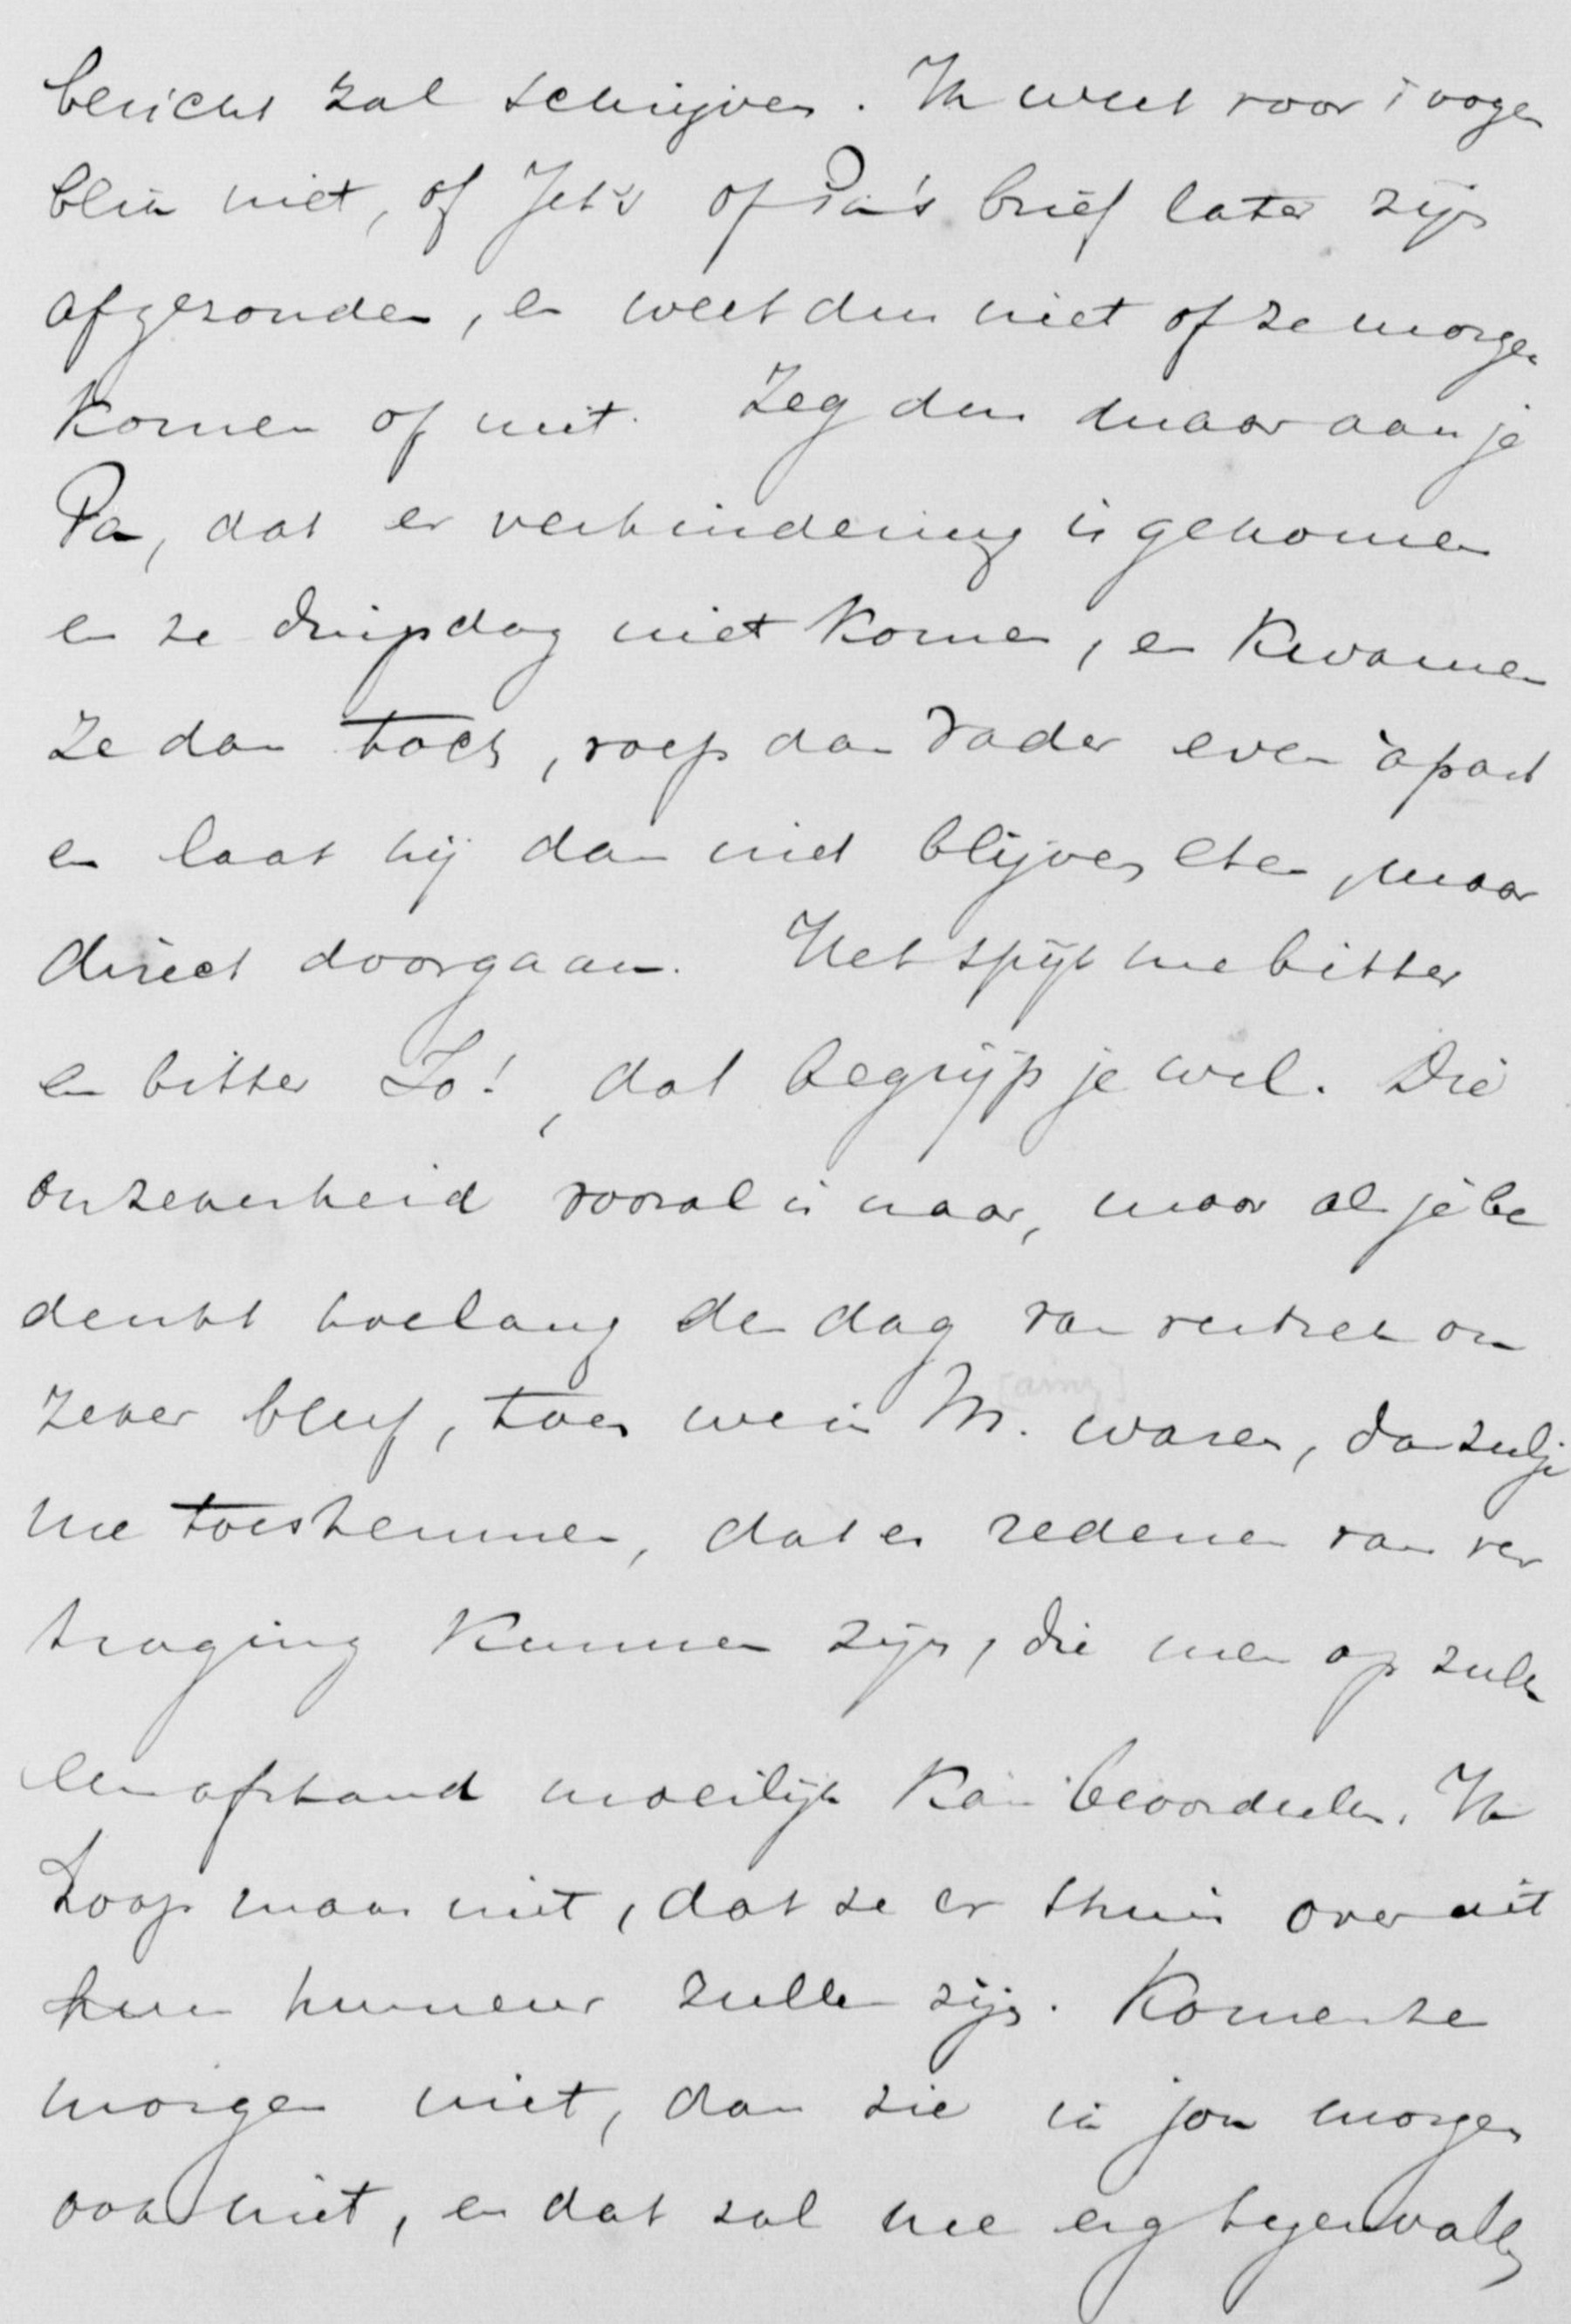 bericht zal schrijven. Ik weet voor 't oogen
blik niet, of Jet's of Pa's brief later zijn
afgezonden, en weet dus niet of ze morgen
komen of niet. Zeg dus maar aan je
Pa, dat er verhindering is gekomen
en ze Dinsdag niet komen, en kwamen
ze dan toch, roep dan Vader even apart
en laat hij dan niet blijven eten, maar
direct doorgaan. Het spijt me bitter
en bitter Lo!, dat begrijp je wel. Die
onzekerheid vooral is naar, maar als je be
denkt hoelang de dag van vertrek on
zeker bleef, toen we in M. waren, dan zul je
[amz]
me toestemmen, dat er redenen van ver
traging kunnen zijn, die men op zulk
een afstand moeilijk kan beoordeelen. Ik
hoop maar niet, dat ze er thuis over uit
hun humeur zullen zijn. Komen ze
morgen niet, dan zie ik jou morgen
ook niet, en dat zal me erg tegenvallen